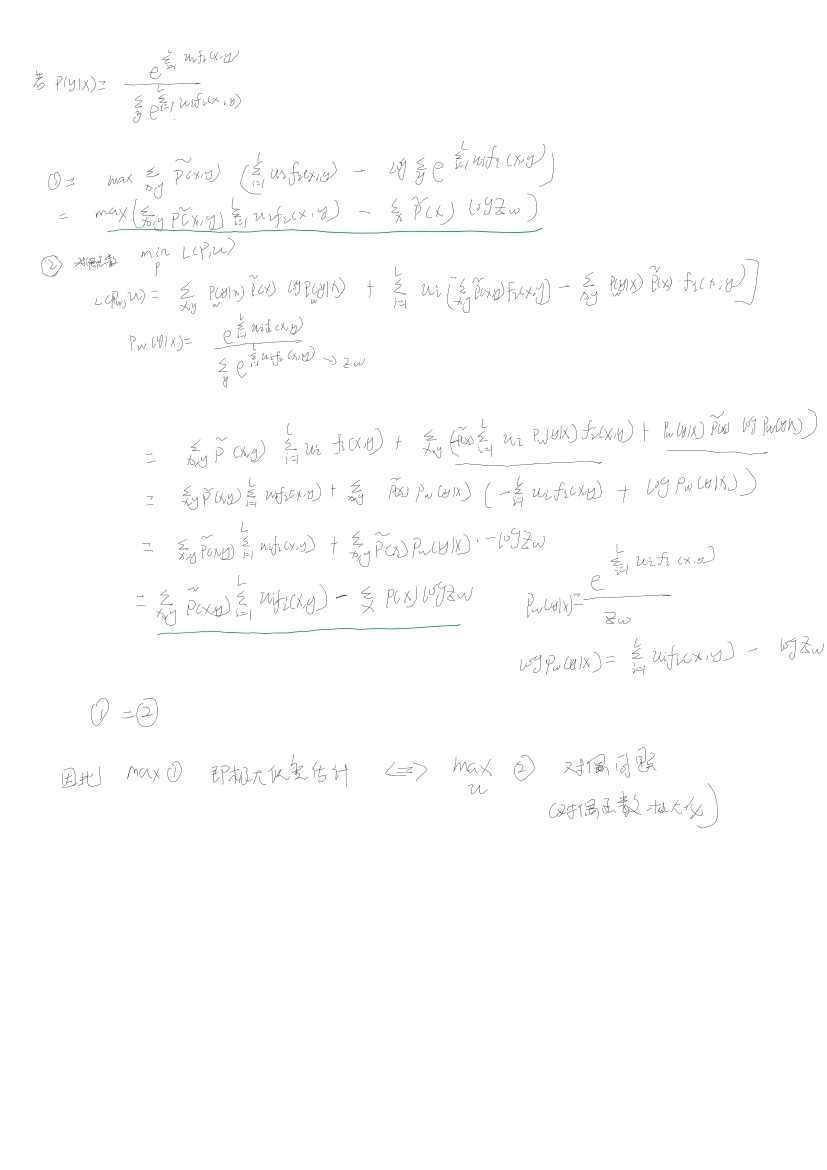 若 P(y|x) = e^{Σ_{i=1}^L u_i f_i(x,y)} / Σ_y e^{Σ_{i=1}^L u_i f_i(x,y)}
① = max Σ_{x,y} P̃(x,y) (Σ_{i=1}^L u_i f_i(x,y) - log Σ_y e^{Σ_{i=1}^L u_i f_i(x,y)})
= max(Σ_{x,y} P̃(x,y) Σ_{i=1}^L u_i f_i(x,y) - Σ_x P̃(x) log Z_w)
② min_P L(P,u)
L(P_w, u) = Σ_{x,y} P_w(y|x) P̃(x) log P_w(y|x) + Σ_{i=1}^L u_i [Σ_{x,y} P̃(x,y) f_i(x,y) - Σ_{x,y} P_w(y|x) P̃(x) · f_i(x,y)]
P_w(y|x) = e^{Σ_{i=1}^L u_i f_i(x,y)} / Σ_y e^{Σ_{i=1}^L u_i f_i(x,y)} → Z_w
= Σ_{x,y} P̃(x,y) Σ_{i=1}^L u_i f_i(x,y) + Σ_{x,y} (P̃(x) Σ_{i=1}^L u_i P_w(y|x) f_i(x,y) + P_w(y|x) P̃(x) log P_w(y|x))
= Σ_{x,y} P̃(x,y) Σ_{i=1}^L u_i f_i(x,y) + Σ_{x,y} P̃(x) P_w(y|x) (-Σ_{i=1}^L u_i f_i(x,y) + log P_w(y|x))
= Σ_{x,y} P̃(x,y) Σ_{i=1}^L u_i f_i(x,y) + Σ_{x,y} P̃(x) P_w(y|x) · -log Z_w
= Σ_{x,y} P̃(x,y) Σ_{i=1}^L u_i f_i(x,y) - Σ_x P(x) log Z_w
P_w(y|x) = e^{Σ_{i=1}^L u_i f_i(x,y)} / Z_w
log P_w(y|x) = Σ_{i=1}^L u_i f_i(x,y) - log Z_w
① = ②
因此 max ① 即极大似然估计 <=> max_u ② 对偶问题
(对偶函数极大化)